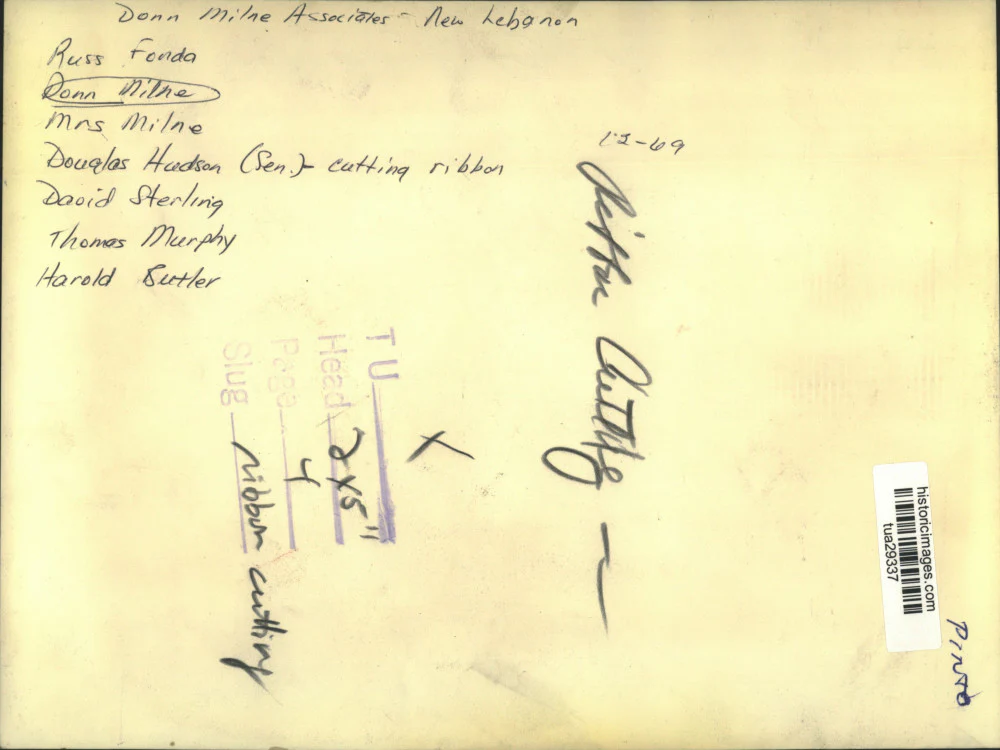 Donn Milne Associates - New Lebanon
Russ Fonda
Donn Milne
Mrs Milne
Douglas Hudson (Sen.) - cutting ribbon
David Sterling
Thomas Murphy
Harold Butler
12-69
Cutting -
TU
Head 2 x 5"
Page 4
Slug ribbon cutting
X
historicimages.com
tua29337